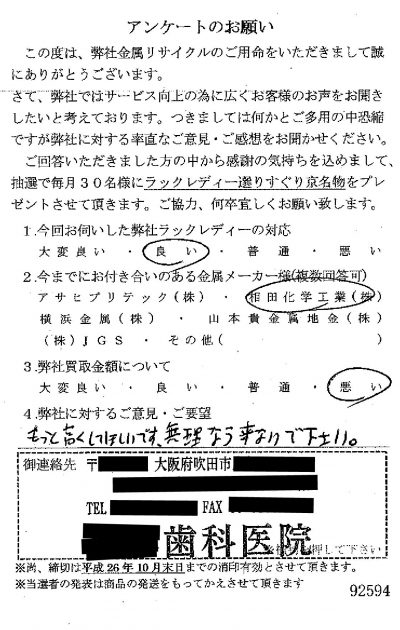 アンケートのお願い
この度は、弊社金属リサイクルのご用命をいただきまして誠
にありがとうございます。
さて、弊社ではサービス向上の為に広くお客様のお声をお聞き
したいと考えております。つきましては何かとご多用の中恐縮
ですが弊社に対する率直なご意見・ご感想をお聞かせください。
ご回答いただきました方の中から感謝の気持ちを込めまして、
抽選で毎月30名様にラックレディー選りすぐり京名物をプレ
ゼントさせて頂きます。ご協力、何卒宜しくお願い致します。
1.今回お伺いした弊社ラックレディーの対応
大変良い・良い・普通・悪い
2.今までにお付き合いのある金属メーカー様(複数回答可)
アサヒプリテック(株)・相田化学工業(株)
横浜金属(株)・山本貴金属地金(株)
(株)JGS・その他(
3.弊社買取金額について
大変良い・良い・普通・悪い
4.弊社に対するご意見・ご要望
もっと高くしてほしいです。無理なら来ないで下さい。
御連絡先 〒 大阪府吹田市
TEL FAX
歯科医院
押して下さい
※尚、締切は平成26年10月末日までの消印有効とさせて頂きます。
※当選者の発表は商品の発送をもってかえさせて頂きます
92594